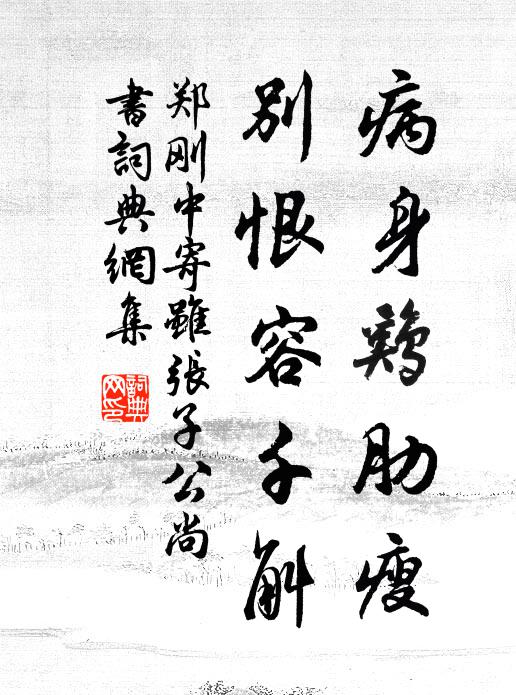 病身鷄肋瘦
别恨容千斛
郑刚中寄雖張子公尚
書詞典網集
詞典
网印